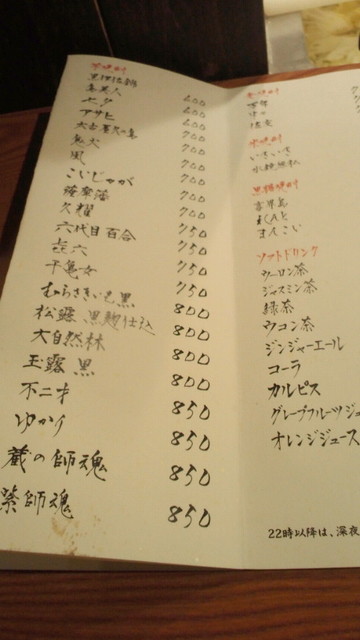 芋焼酎
黒伊佐錦 600
島美人 600
七夕 600
アサヒ 700
大古酒久の島 700
鬼火 700
風 700
こいじゃが 700
薩摩藩 700
久耀 700
六代目百合 750
㐂六 750
千亀女 750
むらさきいも黒 750
松露 黒麹仕込 800
大自然林 800
玉露 黒 800
不二才 800
ゆかり 850
蔵の師魂 850
紫師魂 850
麦焼酎
米焼酎
いきいき
黒糖焼酎
喜界島
まんこい
ソフトドリンク
ウーロン茶
ジャスミン茶
緑茶
ウコン茶
ジンジャーエール
コーラ
カルピス
グレープフルーツジュ
オレンジジュース
22時以降は、深夜